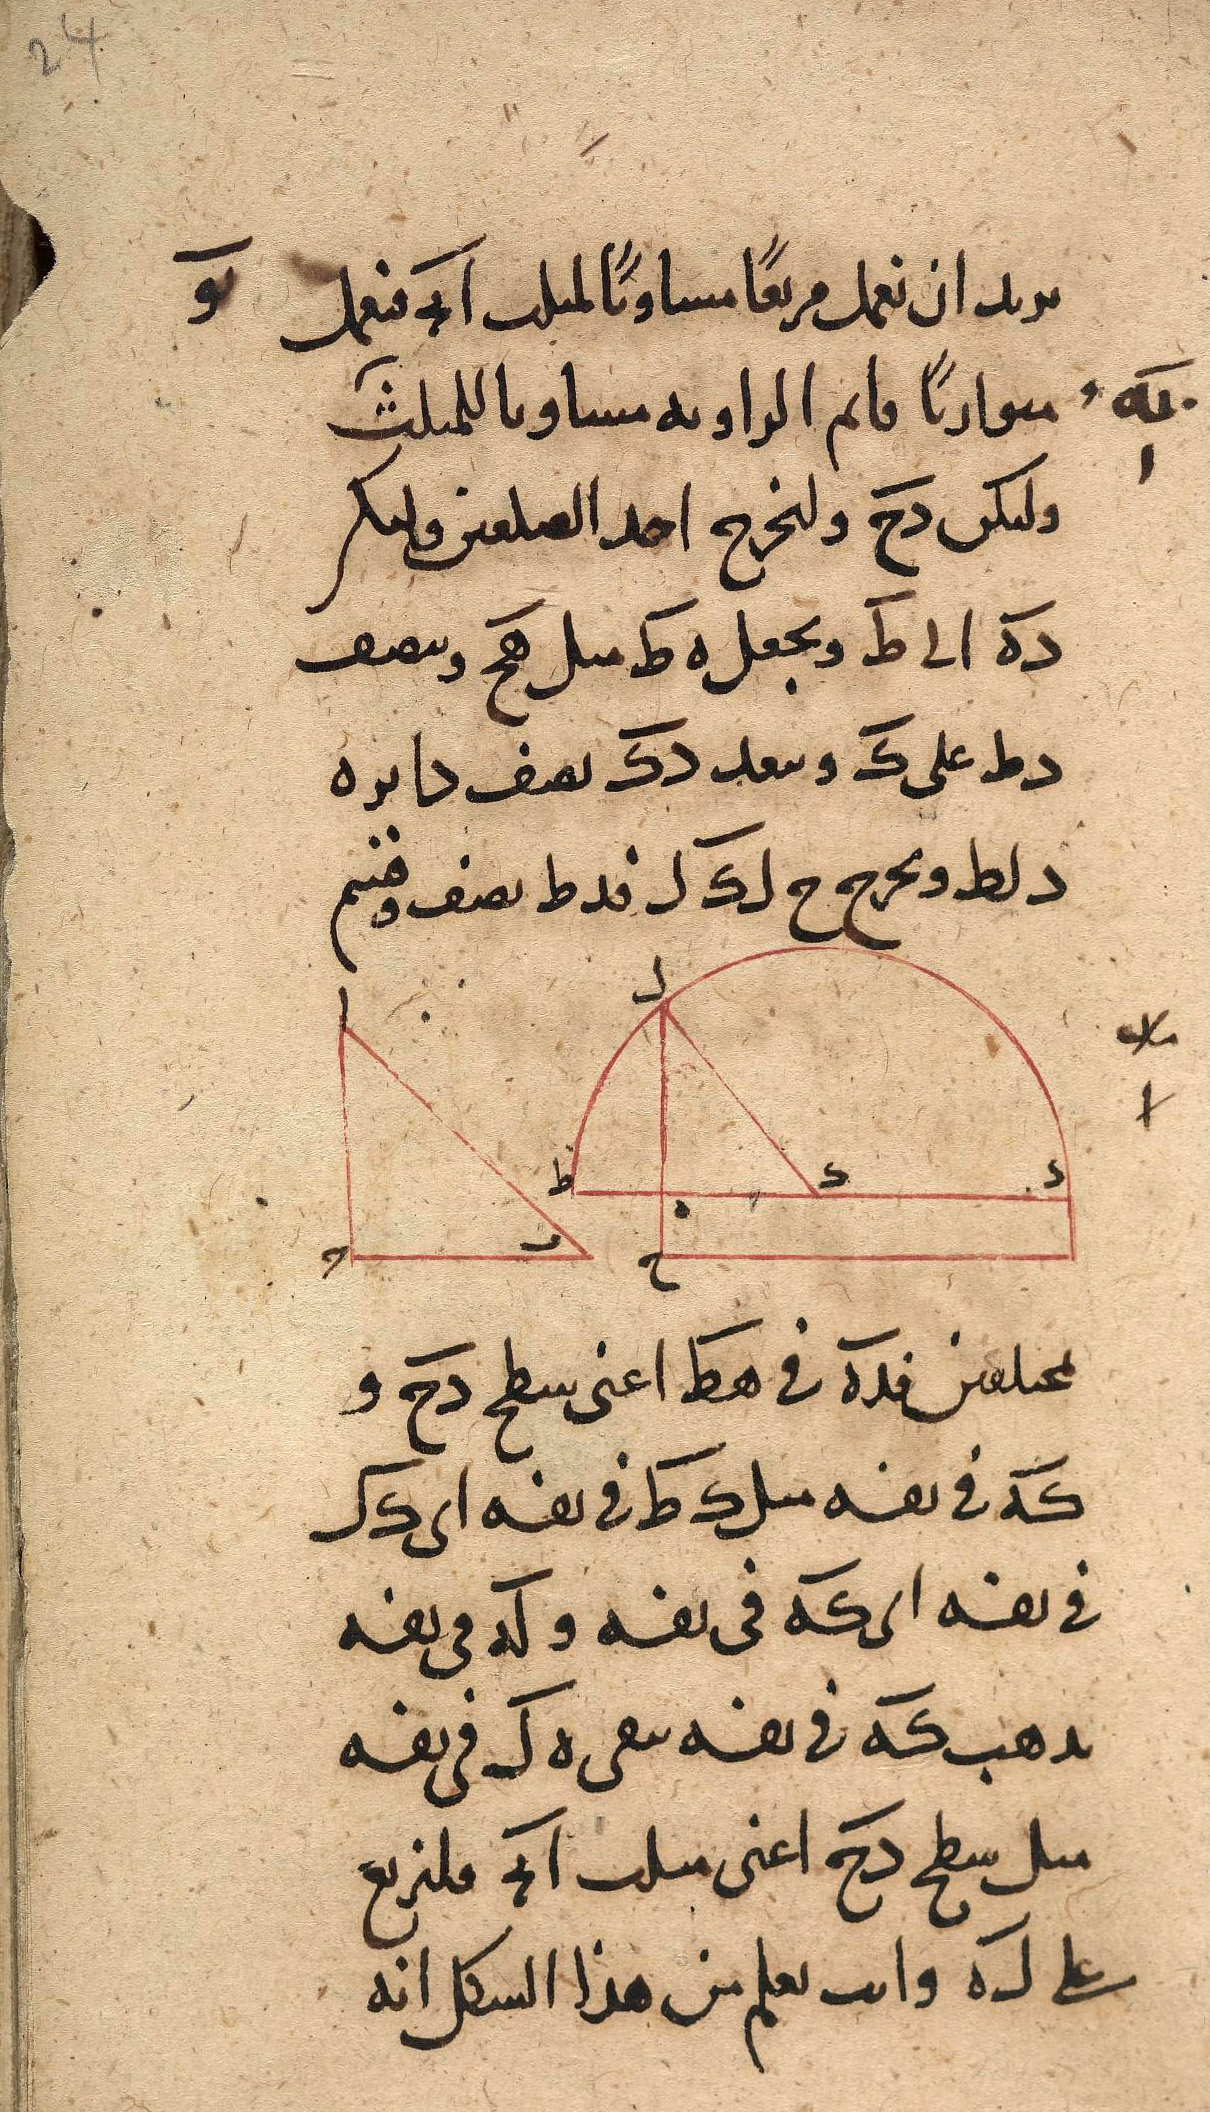 24
نريد ان نعمل مربعًا مساويًا لمثلث ابج فنعمل
متوازيًا قايم الزاويه مساويا للمثلث
وليكن دح ولنخرج احد الضلعين وليكن
ده الى ط ونجعل ه ط مثل هح وننصف
دط على ك وببعد دك نصف دايره
دلط ونخرج ح ه الى ل فدط نصف وقسم
ا
ل
ط
ك
د
ه
ح
ب
ج
بمختلفين فده في هط اعنى سطح دح و
كه في نفسه مثل كط في نفسه اى كل
في نفسه اى كه في نفسه و له في نفسه
يذهب كه في نفسه يبقى ه ل في نفسه
مثل سطح دح اعنى مثلث ابج فلنربع
على له وانت تعلم من هذا الشكل انه